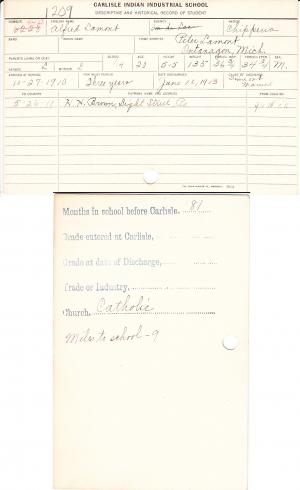 CARLISLE INDIAN INDUSTRIAL SCHOOL
DESCRIPTIVE AND HISTORICAL RECORD OF STUDENT
1209
NUMBER ENGLISH NAME AGENCY NATION
Alfred Lamont Chippewa
INDIAN NAME HOME ADDRESS
Peter Lamont
Ontonagon, Mich.
PARENTS LIVING OR DEAD BLOOD AGE HEIGHT WEIGHT SEX
FATHER MOTHER 20 5-5 135 M.
ARRIVED AT SCHOOL FOR WHAT PERIOD DATE DISCHARGED CAUSE OF DISCHARGE
10-27-1910 Three years June 10, 1913
TO COUNTRY PATRONS NAME AND ADDRESS FROM COUNTRY
5-26-11
Months in school before Carlisle, 81
Grade entered at Carlisle,
Grade at date of Discharge,
Trade or Industry,
Church, Catholic
Miles to school - 9